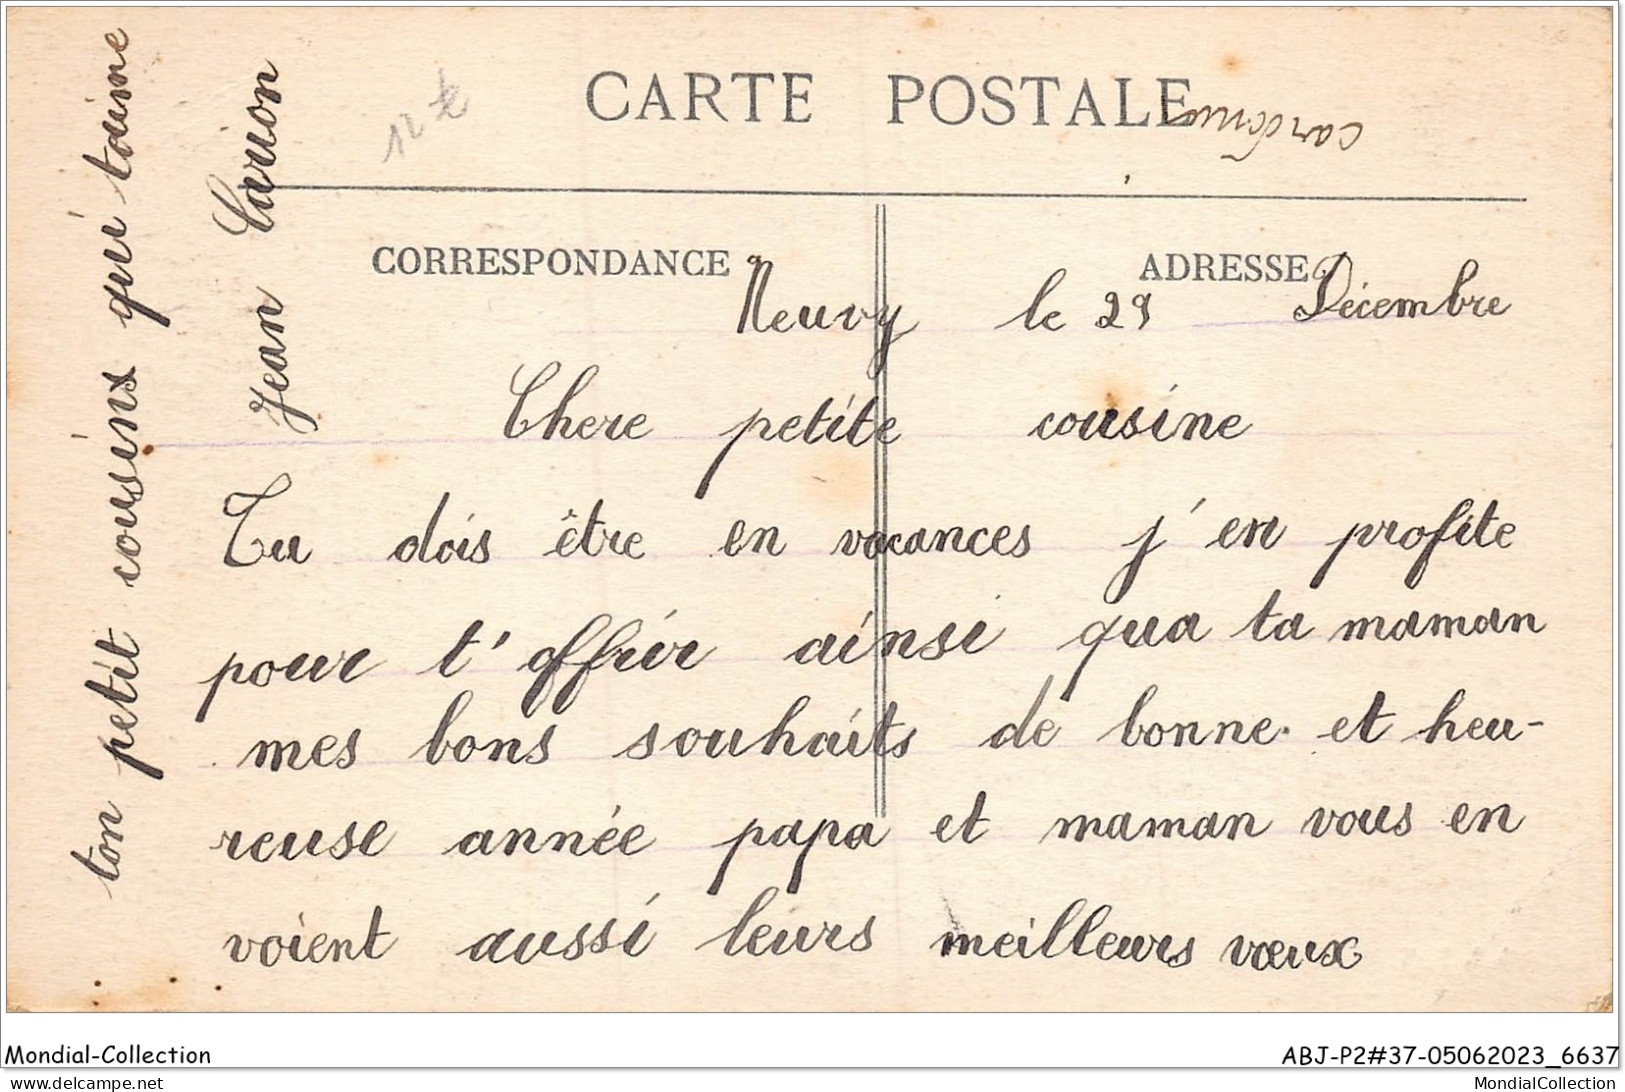 CARTE POSTALE
12 €
CORRESPONDANCE
ADRESSE
Neuvy le 29 Décembre
Chere petite cousine
Tu dois être en vacances j'en profite
pour t'offrir ainsi qua ta maman
mes bons souhaits de bonne et heu-
reuse année papa et maman vous en
voient aussi leurs meilleurs vœux
ton petit cousins qui taime
Jean Carion
Mondial-Collection
ABJ-P2#37-05062023_6637
www.delcampe.net
MondialCollection